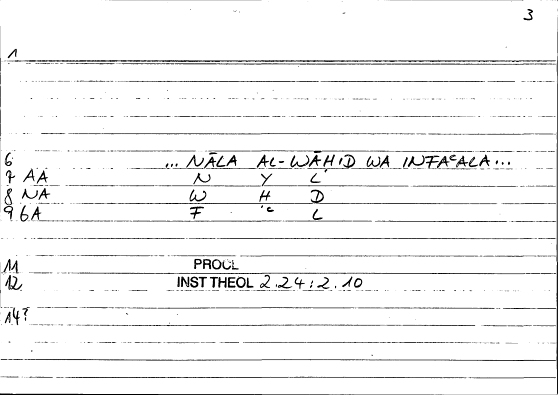 3
1
6 ... NĀLA AL-WĀḤID WA INFAᶜALA ...
7 AA N Y L
8 NA W Ḥ D
9 6A F ᶜ L
11 PROCL
12 INST THEOL 2.24:2.10
14?